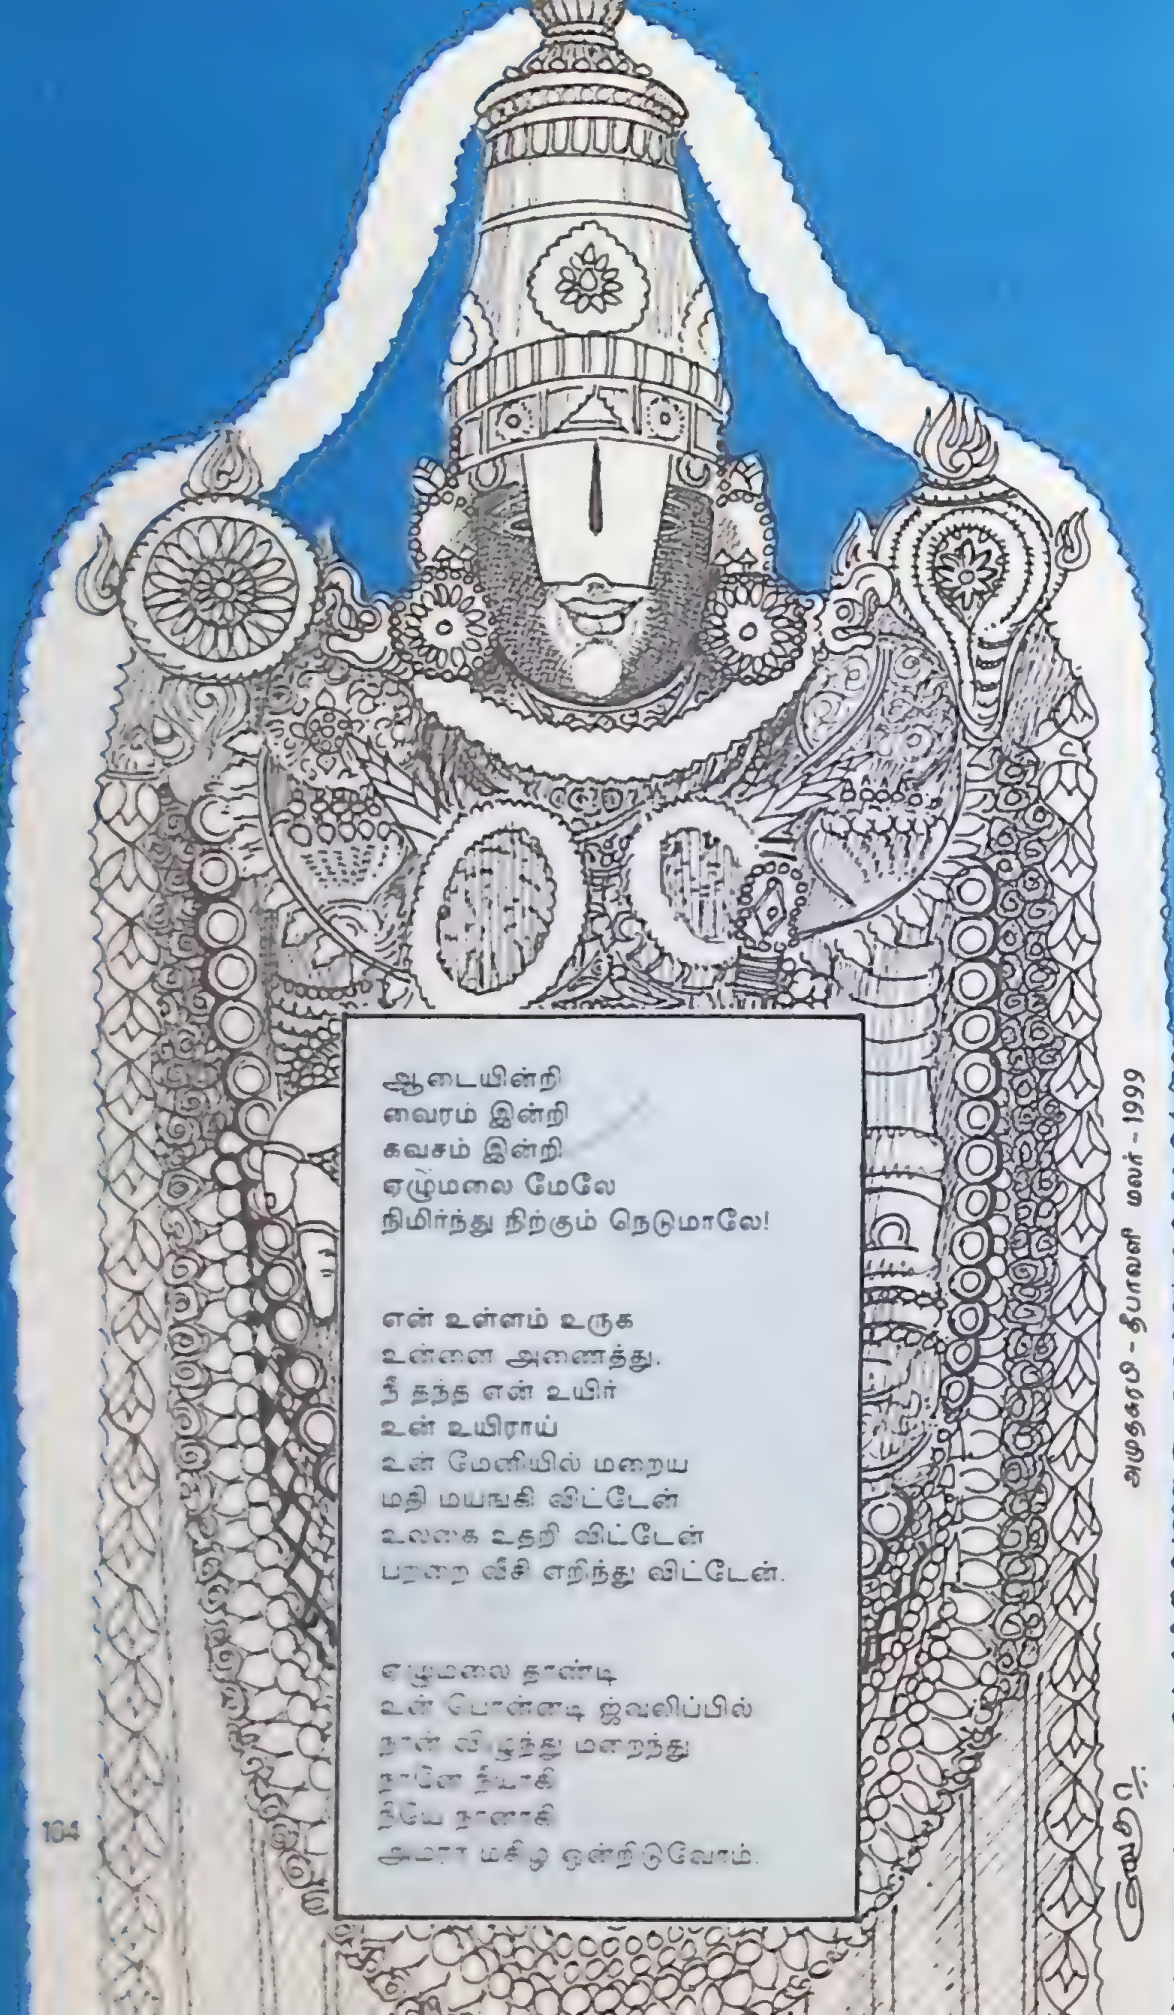 ஆடையின்றி
வைரம் இன்றி
கவசம் இன்றி
ஏழுமலை மேலே
நிமிர்ந்து நிற்கும் நெடுமாலே!
என் உள்ளம் உருக
உன்னை அணைத்து,
நீ தந்த என் உயிர்
உன் உயிராய்
உன் மேனியில் மறைய
மதி மயங்கி விட்டேன்
உலகை உதறி விட்டேன்
பற்றை வீசி எறிந்து விட்டேன்.
ஏழுமலை தாண்டி
உன் பொன்னடி ஜ்வலிப்பில்
நான் விழுந்து மறைந்து
நானே நீயாகி
நீயே நானாகி
அமரர் மகிழ ஒன்றிடுவோம்.
அமுதசுரபி - தீபாவளி மலர் - 1999
104